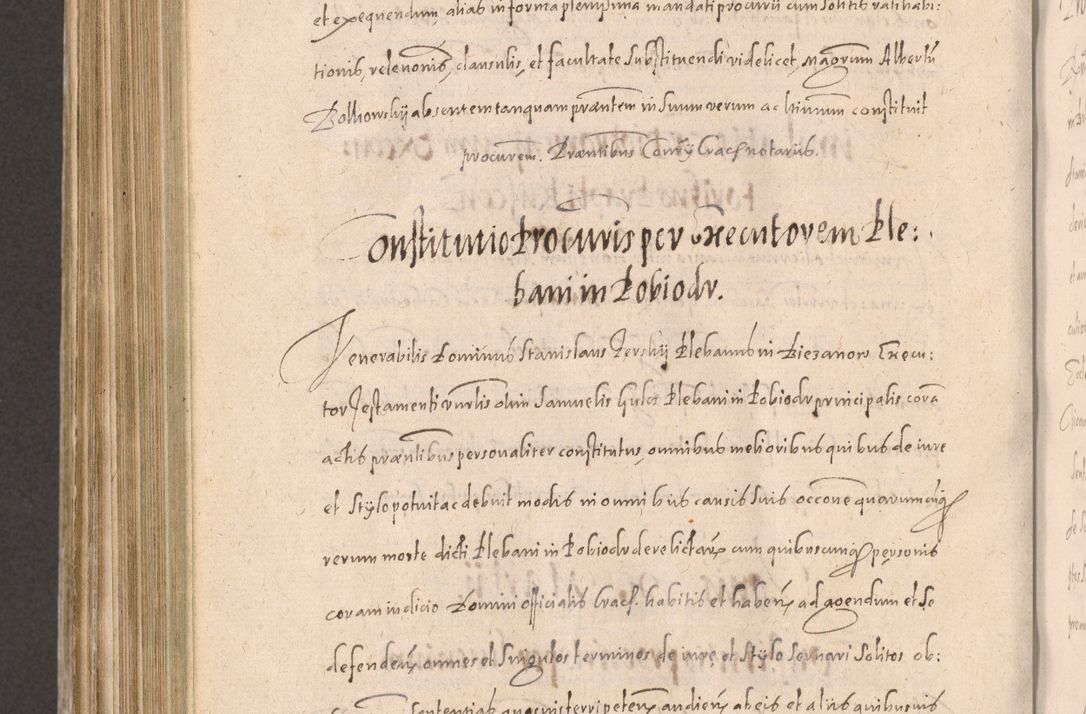 et exequendum, alias in forma plenissima mandati procurii cum solitis ratihabi:
tionis, relevonis, clausulis, et facultate substituendi videlicet, Magrum Albertū
Bolkowskij absentem tanquam praesentem in suum verum ac ltimum constituit
procurem. Praesentibus Consrij Cracs notariis.
Constitutio Procuris per Executorem Ple:
bani in Dobiodr.
Venerabilis Dominus Stanislaus Jerskij Plebanus in Biezanow Execu:
tor Testamenti olim Samuelis Plebani in Dobiodr principalis corā
actis praesentibus personaliter constitutus, omnibus melioribus quibus de iure
et stylo potuit ac debuit modis in omnibus causis suis occone quarumcūq
rerum morte dicti Plebani in Dobiodr derelictarū cum quibuscunq personis
coram iudicio Domini officialis Cracs. habitis et habenꝫ ad agendum et se
defendenꝫ omnes et singulos terminos de iure et stylo servari solitos ob:
sententias ferri petenꝫ audienꝫ ab eis et aliis quibusuis